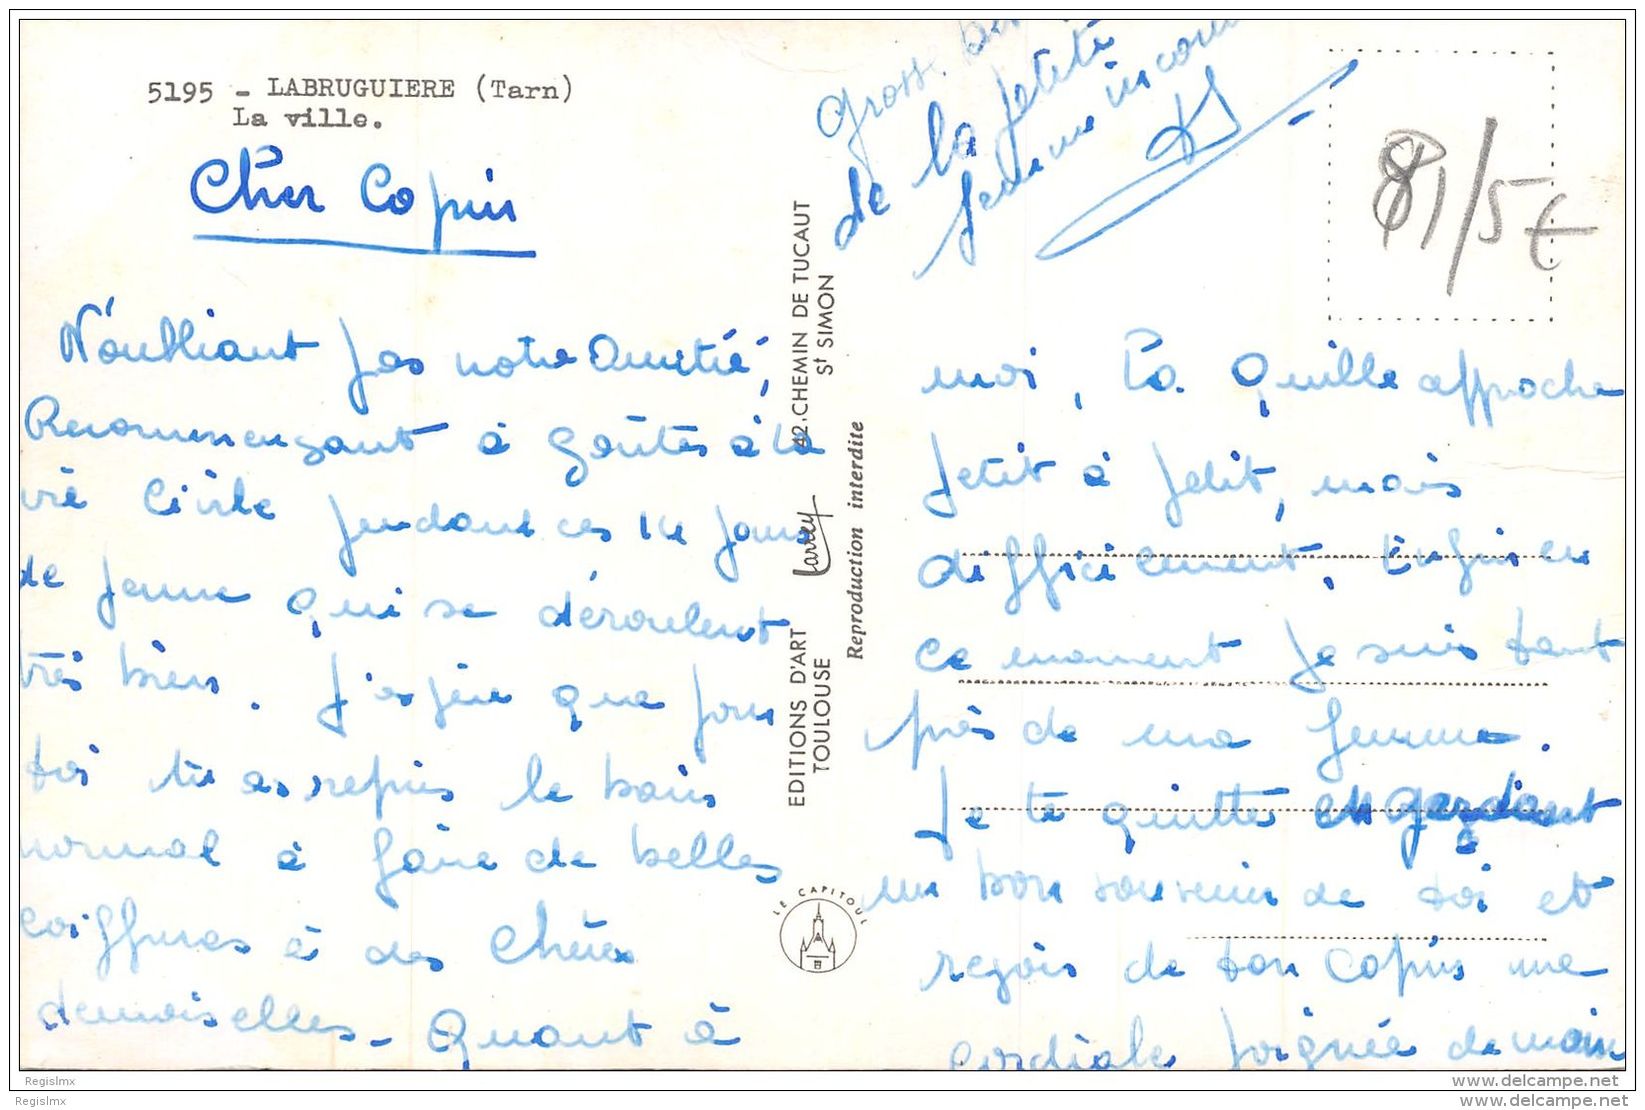 5195 - LABRUGUIERE (Tarn)
La ville.
Cher Copin
N'oubliant pas notre Amitié,
Recommençant à goûtés à la
vie Civile pendant ces 14 jours
de perme qui se déroulent
très bien. J'espère que pour
toi tu as repris le bais
normal à faire de belles
coiffures à des Chères
demoiselles - Quant à
moi, la Quille approche
petit à petit, mais
difficilement, Enfin en
ce moment je suis tant
près de ma femme.
Je te quittes en gardant
un bon souvenir de toi et
reçois de ton Copin une
cordiale poignée de main
Gross.
de la petite
femme inconu
81/5€
42, CHEMIN DE TUCAUT
St SIMON
Larrey
EDITIONS D'ART
TOULOUSE
Reproduction interdite
LE CAPITOUL
RegisImx
RegisImx
www.delcampe.net
www.delcampe.net